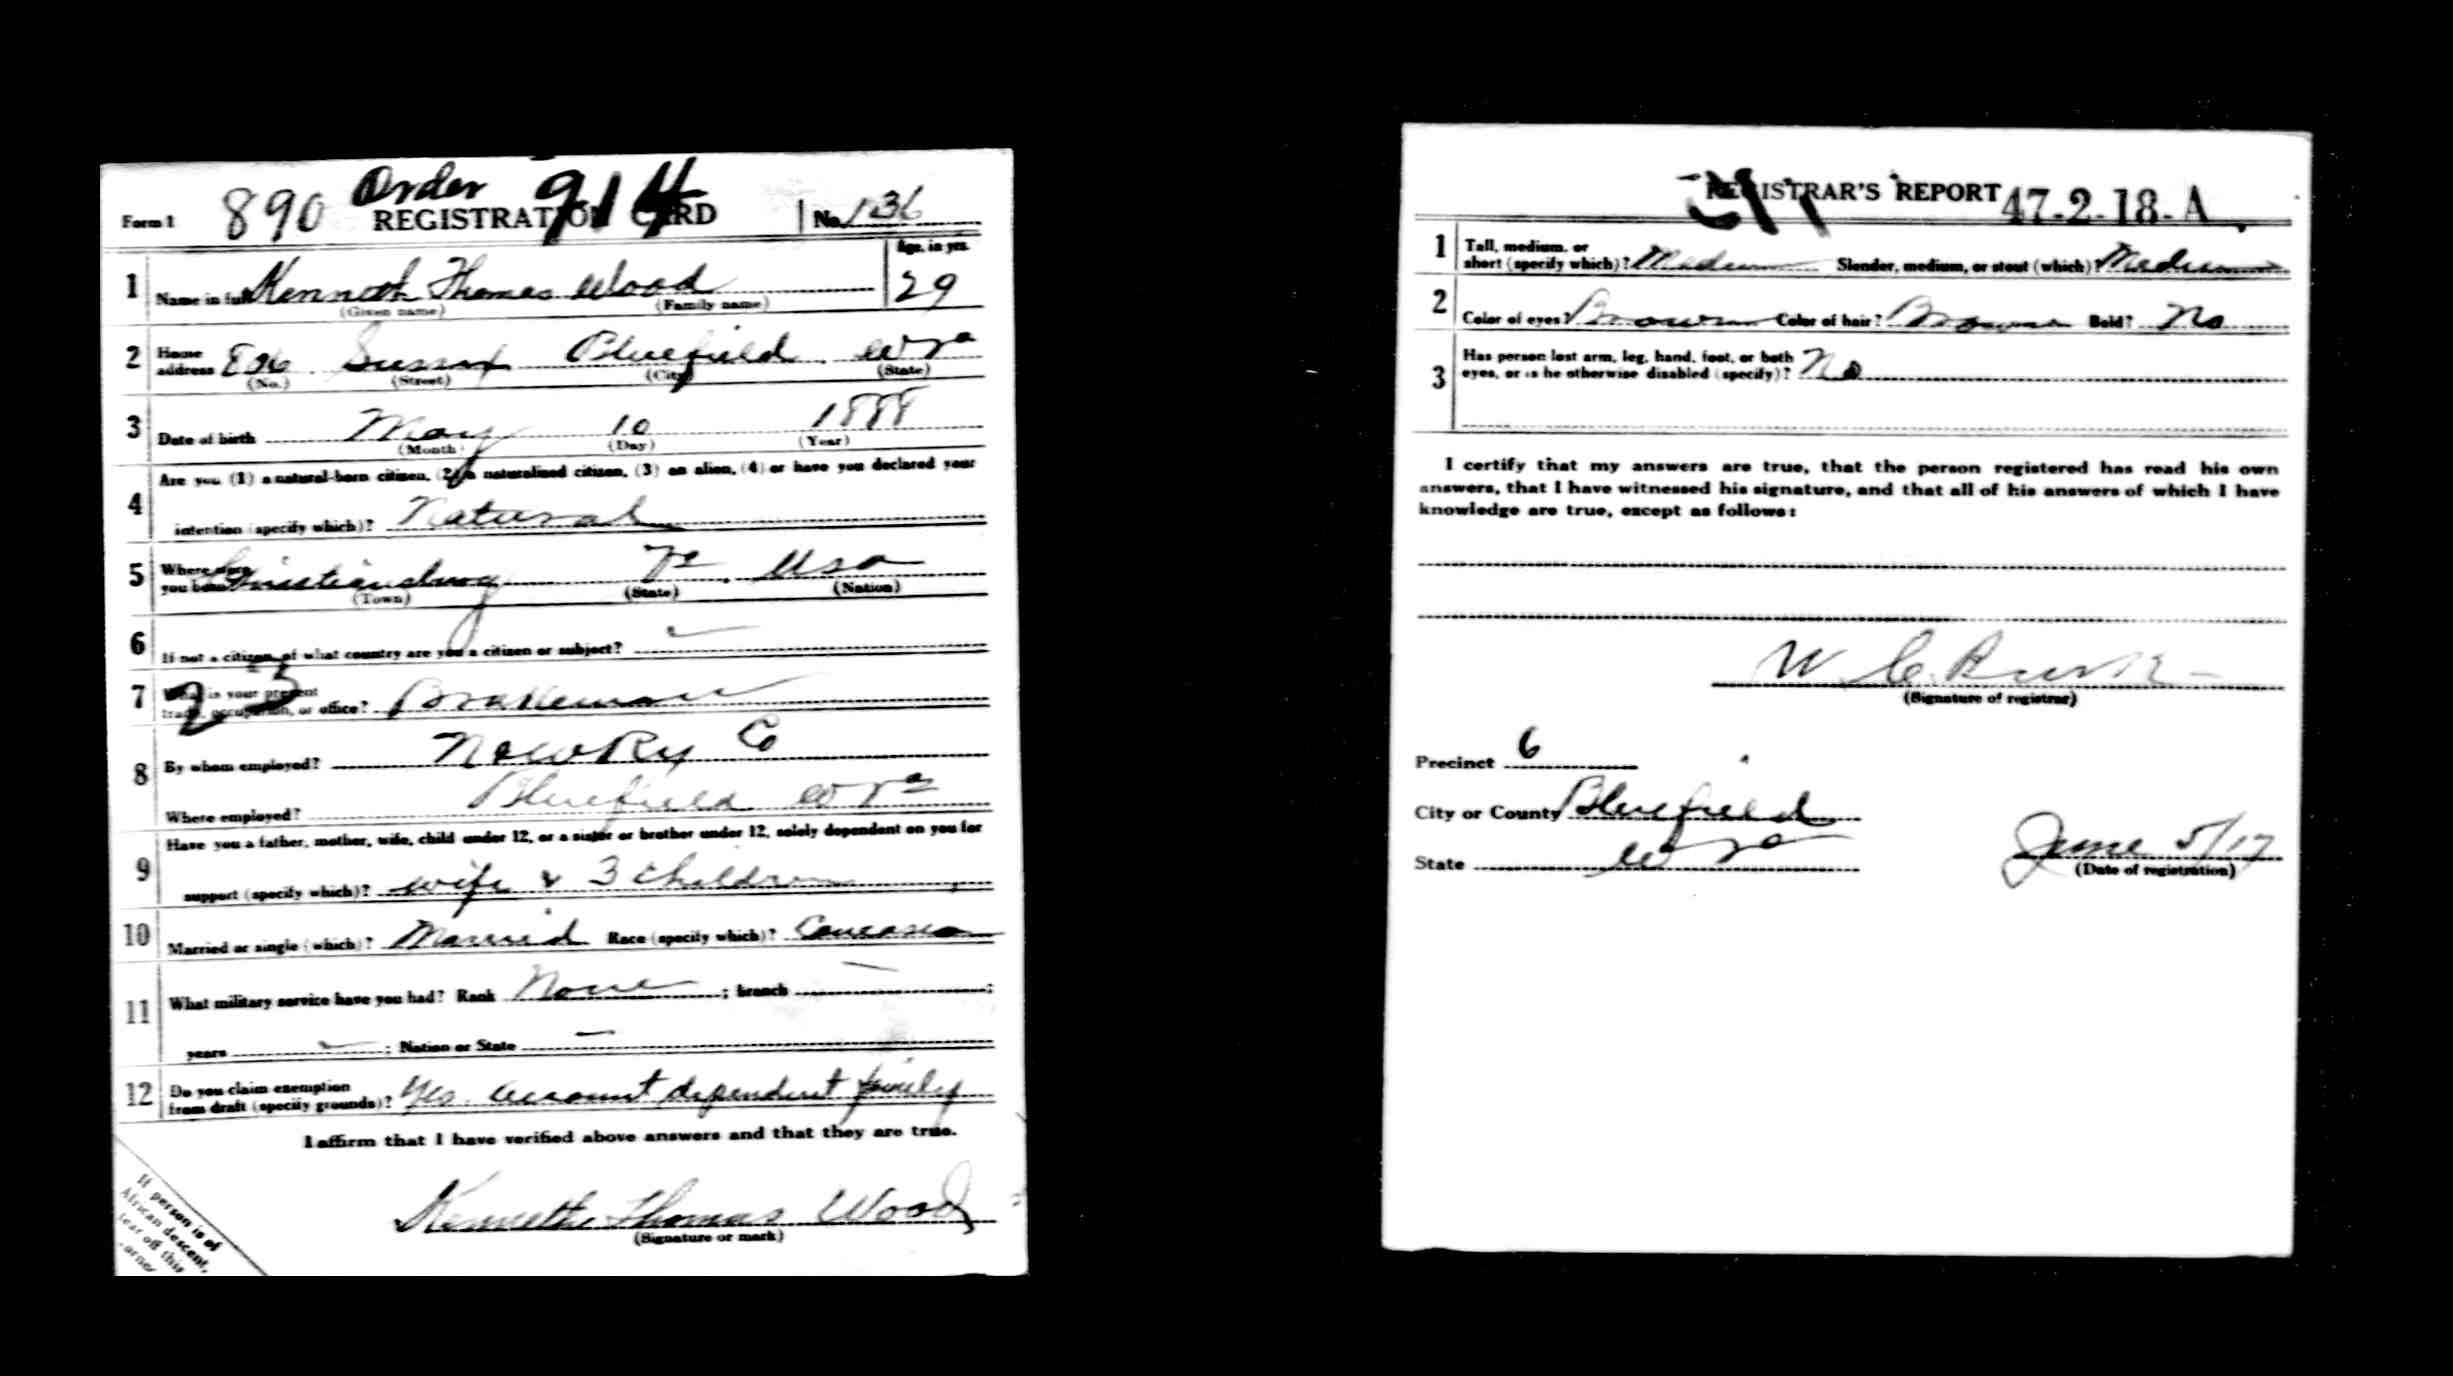 Order 914
Form 1 890 REGISTRATION CARD No. 136
1 Name in full Kenneth Thomas Wood Age, in yrs. 29
(Given name) (Family name)
2 Home address Bluefield W Va
(No.) (Street) (City) (State)
3 Date of birth May 10 1888
(Month) (Day) (Year)
4 Are you (1) a natural-born citizen, (2) a naturalized citizen, (3) an alien, (4) or have you declared your
intention (specify which)? Natural
5 Where were you born? Christiansburg Va Usa
(Town) (State) (Nation)
6 If not a citizen, of what country are you a citizen or subject?
7 What is your present trade, occupation, or office? Brakeman
23
8 By whom employed? N&W Ry Co
Where employed? Bluefield W Va
9 Have you a father, mother, wife, child under 12, or a sister or brother under 12, solely dependent on you for
support (specify which)? wife & 3 children
10 Married or single (which)? Married Race (specify which)? Caucasian
11 What military service have you had? Rank None ; branch — ;
years — ; Nation or State —
12 Do you claim exemption
from draft (specify grounds)? Yes. account dependent family
I affirm that I have verified above answers and that they are true.
Kenneth Thomas Wood
(Signature or mark)
If person is of
African descent,
tear off this
corner
REGISTRAR'S REPORT 47-2-18-A
1 Tall, medium, or
short (specify which)? Medium Slender, medium, or stout (which)? Medium
2 Color of eyes? Brown Color of hair? Brown Bald? No
3 Has person lost arm, leg, hand, foot, or both
eyes, or is he otherwise disabled (specify)? No
I certify that my answers are true, that the person registered has read his own
answers, that I have witnessed his signature, and that all of his answers of which I have
knowledge are true, except as follows:
W C
(Signature of registrar)
Precinct 6
City or County Bluefield
State W Va
June 5/17
(Date of registration)